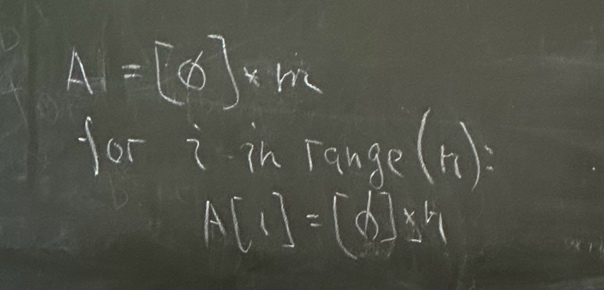 A = [0] * n
for i in range(n):
A[i] = [0] * n